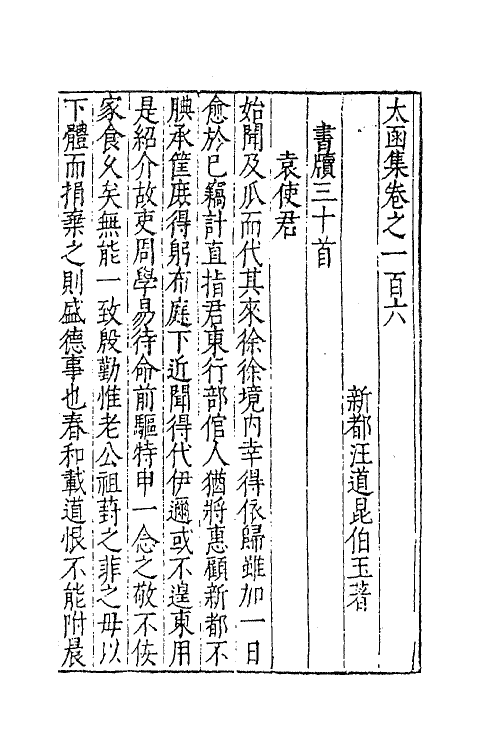 太函集卷之一百六
新都汪道昆伯玉著
書牘三十首
袁使君
始聞及瓜而代其來徐徐境内幸得依歸雖加一日
愈於已竊計直指君東行部倌人猶將惠顧新都不
腆承筐庶得躬布庭下近聞得代伊邇或不遑東用
是紹介故吏周學易待命前驅特申一念之敬不佞
家食久矣無能一致殷勤惟老公祖葑之菲之毋以
下體而捐棄之則盛德事也春和載道恨不能附晨